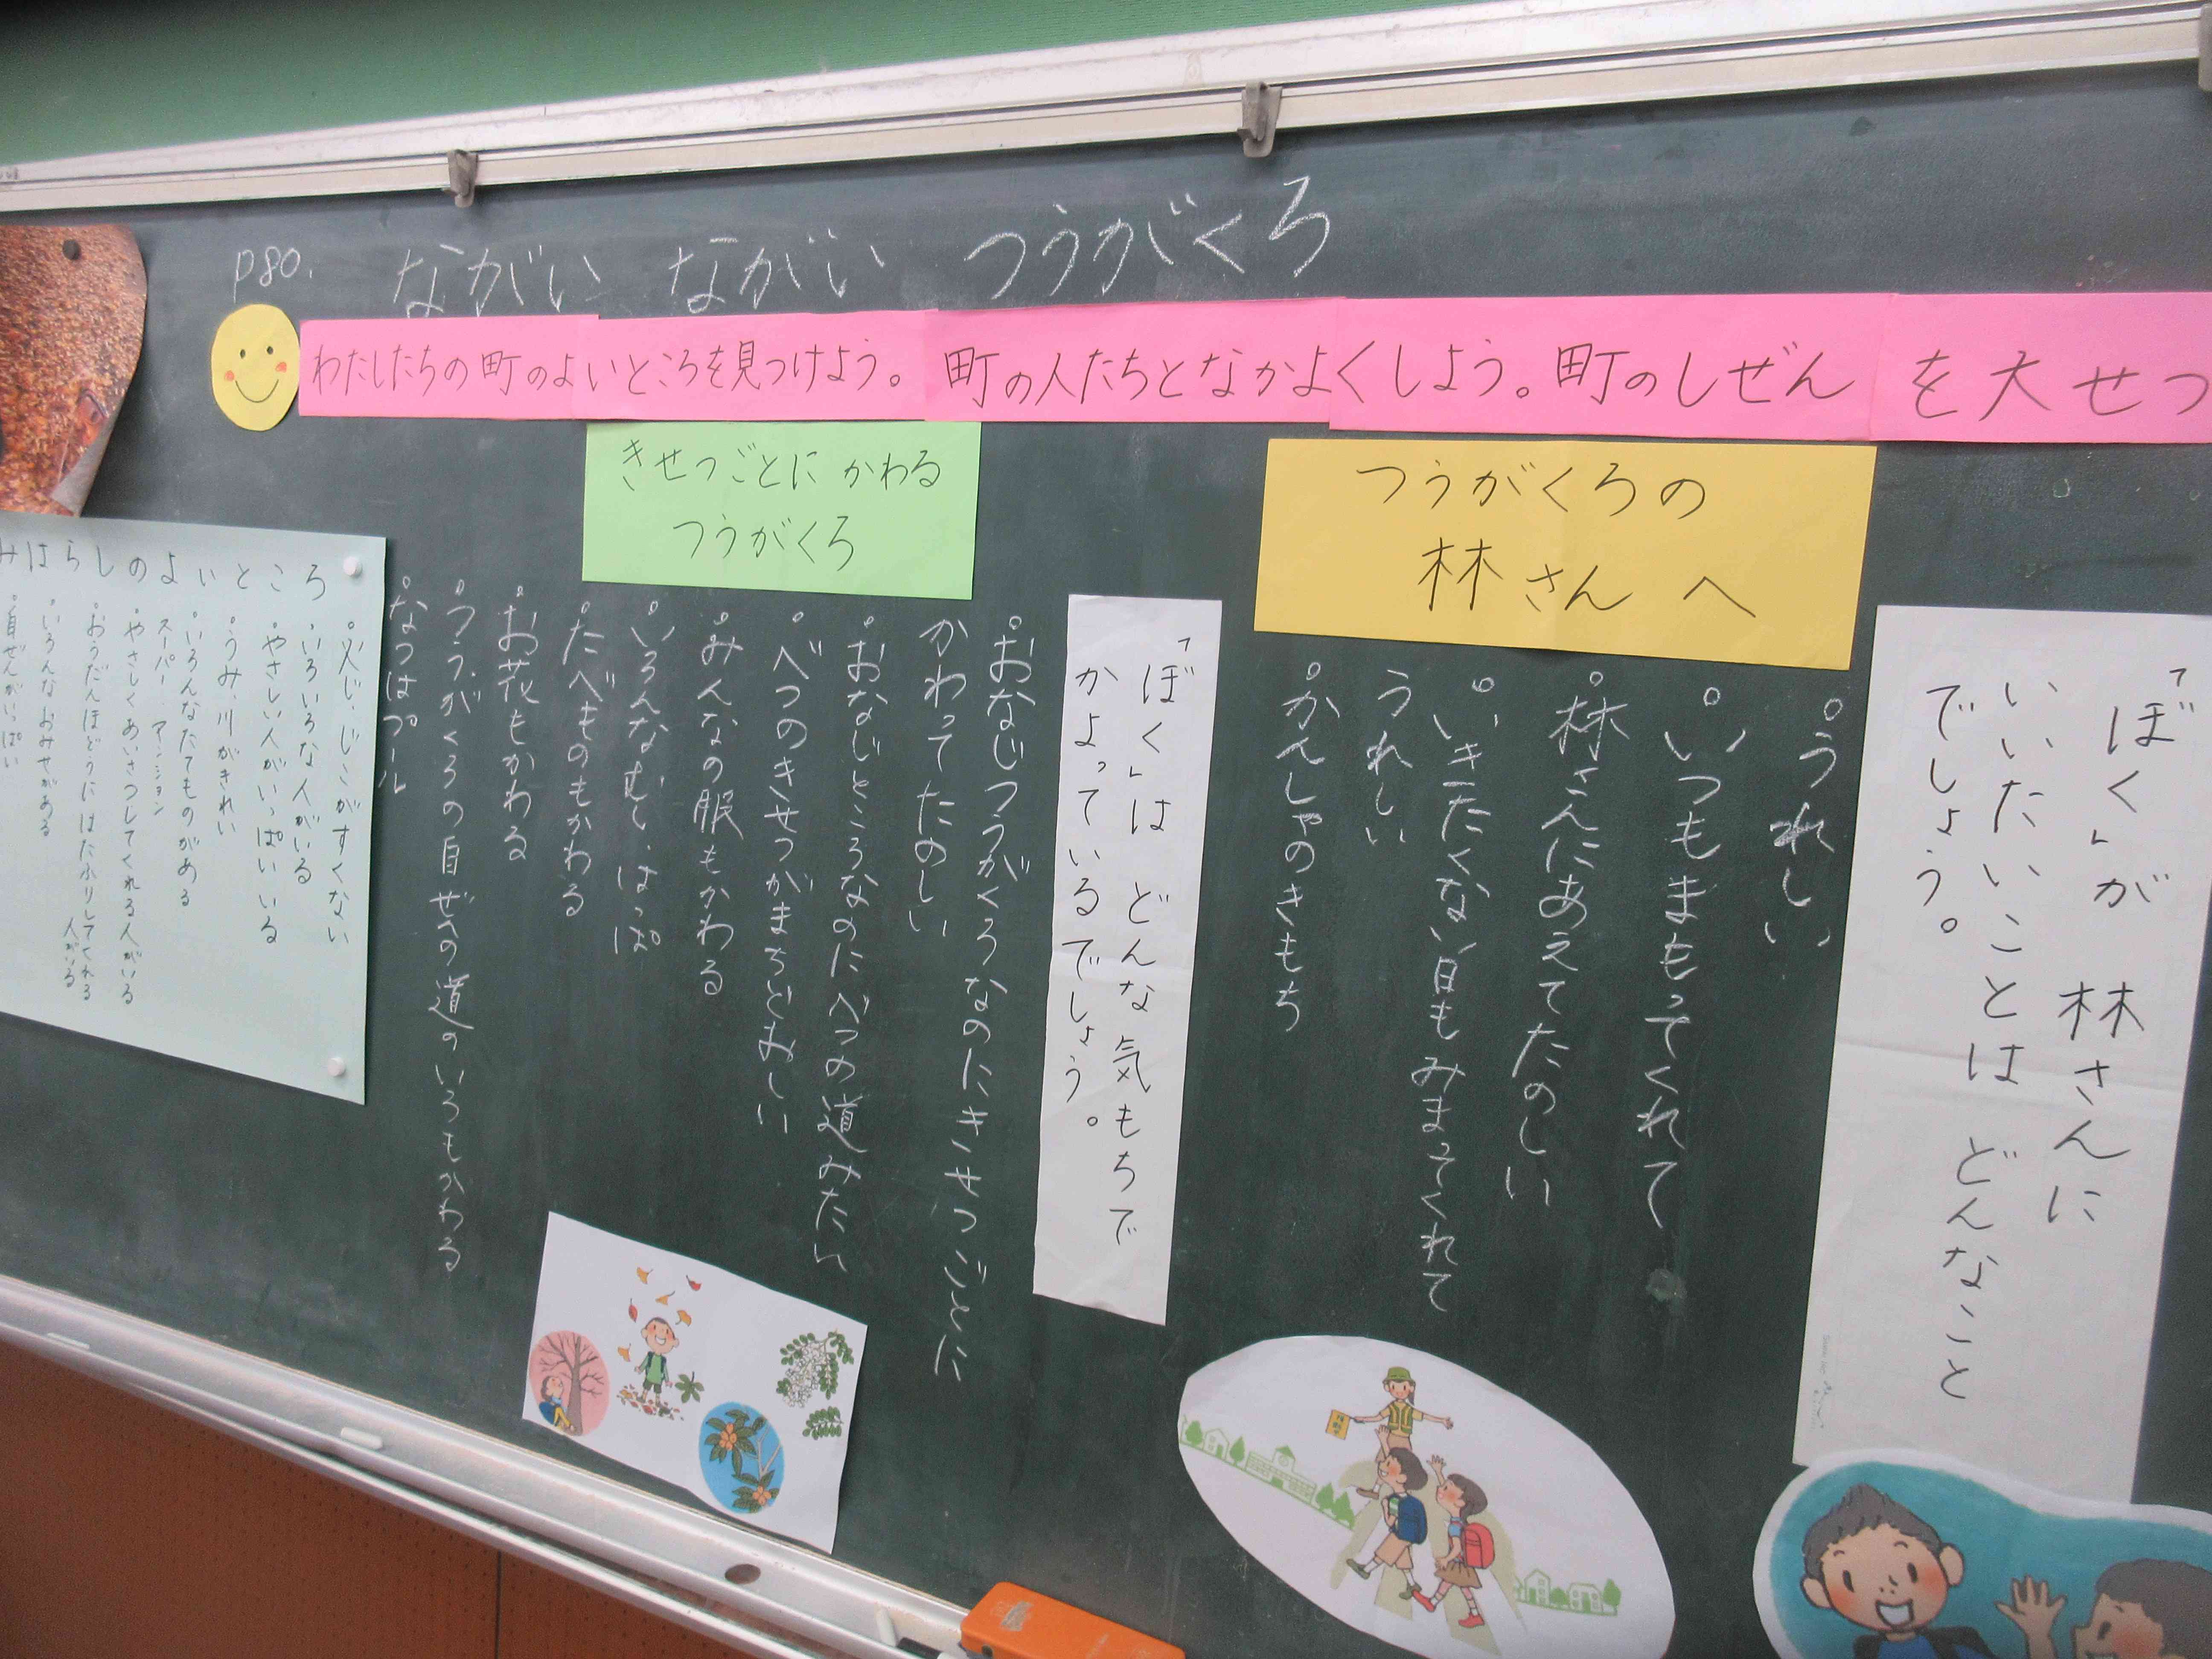 p80. ながい ながい つうがくろ
わたしたちの町のよいところを見つけよう。町の人たちとなかよくしよう。町のしぜんを大せつ
つうがくろの
林さんへ
「ぼく」が 林さんに
いいたいことは どんなこと
でしょう。
°うれしい
°いつもまもってくれて
°林さんにあえてたのしい
°いきたくない日もみまもってくれて
うれしい
°かんしゃのきもち
きせつごとに かわる
つうがくろ
「ぼく」は どんな 気もちで
かよっているでしょう。
°おなじつうがくろなのにきせつごとに
かわってたのしい
°おなじところなのにべつの道みたい
°べつのきせつがまちどおしい
°みんなの服もかわる
°いろんなむし、はっぱ
°たべものもかわる
°お花もかわる
°つうがくろの自ぜんの道のいろもかわる
°なつはプール
みはらしのよいところ
°火じ、じこがすくない
°いろいろな人がいる
°やさしい人がいっぱいいる
°うみ、川がきれい
°いろんなたてものがある
スーパー
°やさしくあいさつしてくれる人がいる
°おうだんほどうにはたふりしてくれる
人がいる
°いろんなおみせがある
°自ぜんがいっぱい